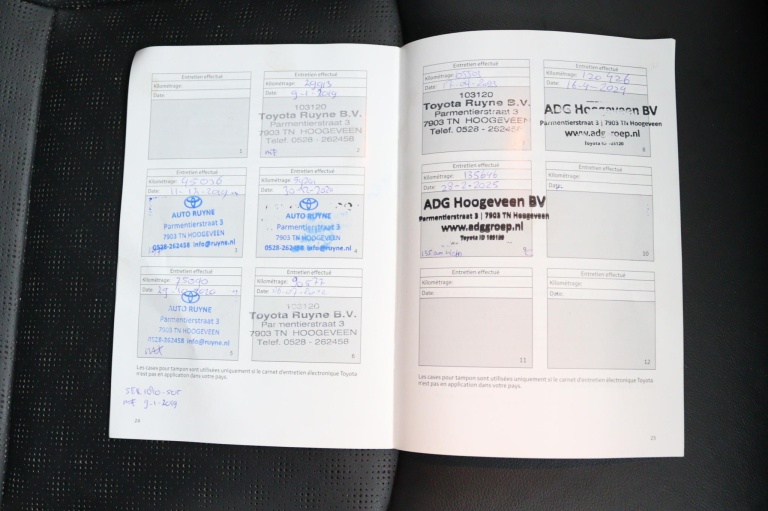 Entretien effectué
Kilométrage:
Date:
1
Entretien effectué
Kilométrage:
Date: 9-1-2019
103120
Toyota Ruyne B.V.
Parmentierstraat 3
7903 TN HOOGEVEEN
Telef. 0528 - 262458
2
Entretien effectué
Kilométrage: 45036
Date:
AUTO RUYNE
Parmentierstraat 3
7903 TN HOOGEVEEN
0528-262458 info@ruyne.nl
3
Entretien effectué
Kilométrage:
Date:
AUTO RUYNE
Parmentierstraat 3
7903 TN HOOGEVEEN
0528-262458 info@ruyne.nl
4
Entretien effectué
Kilométrage: 75090
Date:
AUTO RUYNE
Parmentierstraat 3
7903 TN HOOGEVEEN
0528-262458 info@ruyne.nl
5
Entretien effectué
Kilométrage:
Date:
103120
Toyota Ruyne B.V.
Parmentierstraat 3
7903 TN HOOGEVEEN
Telef. 0528 - 262458
6
Les cases pour tampon sont utilisées uniquement si le carnet d'entretien électronique Toyota
n'est pas en application dans votre pays.
9-1-2019
24
Entretien effectué
Kilométrage:
Date:
103120
Toyota Ruyne B.V.
Parmentierstraat 3
7903 TN HOOGEVEEN
Telef. 0528 - 262458
Entretien effectué
Kilométrage: 120426
Date: 16-4-2024
ADG Hoogeveen BV
Parmentierstraat 3 | 7903 TN Hoogeveen
8
Entretien effectué
Kilométrage: 135646
Date: 28-2-2025
ADG Hoogeveen BV
Parmentierstraat 3 | 7903 TN Hoogeveen
www.adggroep.nl
Toyota ID 103120
9
Entretien effectué
Kilométrage:
Date:
10
Entretien effectué
Kilométrage:
Date:
11
Entretien effectué
Kilométrage:
Date:
12
Les cases pour tampon sont utilisées uniquement si le carnet d'entretien électronique Toyota
n'est pas en application dans votre pays.
25